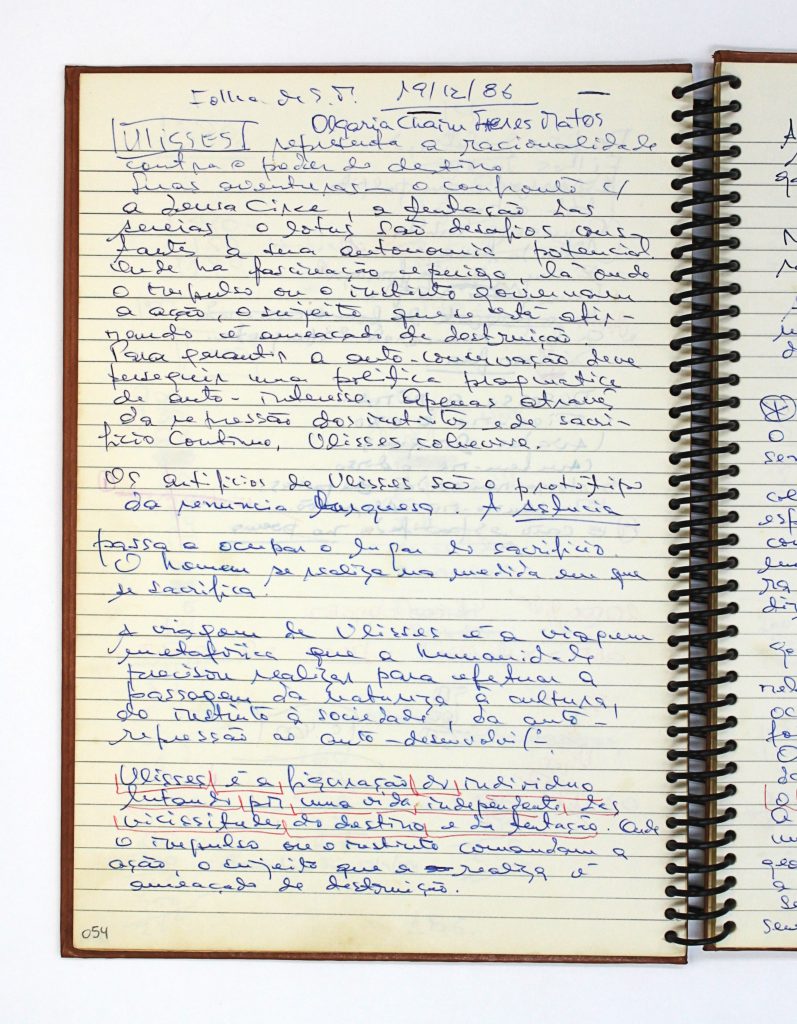 Folha de S. P. 19/12/86 —
Olgaria Chaim Feres Matos
ULISSES representa a racionalidade
contra o poder do destino
Suas aventuras — o confronto c/
a deusa Circe, a tentação das
sereias, o lotus são desafios cons-
tantes à sua autonomia potencial.
Onde há fascinação e perigo, lá onde
o impulso ou o instinto governam
a ação, o sujeito que se está afir-
mando é ameaçado de destruição.
Para garantir a auto-conservação deve
perseguir uma política pragmática
de auto-interesse. Apenas através
da repressão dos instintos e de sacri-
fício contínuo, Ulisses sobrevive.
Os artifícios de Ulisses são o protótipo
da renúncia burguesa. A Astúcia
passa a ocupar o lugar do sacrifício.
O homem se realiza na medida em que
se sacrifica.
A viagem de Ulisses é a viagem
metafórica que a humanidade
precisou realizar para efetuar a
passagem da natureza à cultura,
do instinto à sociedade, da auto-
repressão ao auto-desenvolvi/-.
Ulisses é a figuração do indivíduo
lutando por uma vida independente das
vicissitudes do destino e da tentação. Onde
o impulso ou o instinto comandam a
ação, o sujeito que a realiza é
ameaçado de destruição.
054